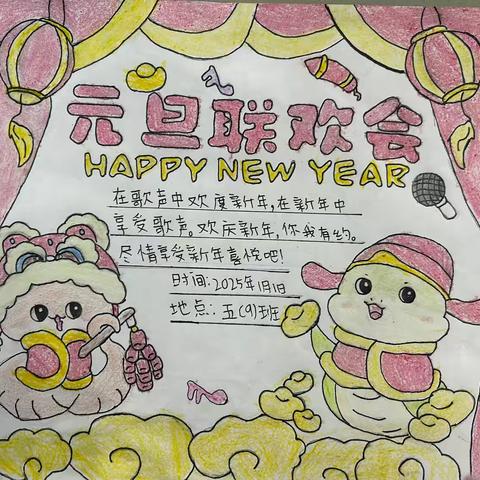 元旦联欢会
HAPPY NEW YEAR
在歌声中欢度新年,在新年中
享受歌声。欢庆新年,你我有约。
尽情享受新年喜悦吧!
时间:2025年1月1日
地点:五(9)班